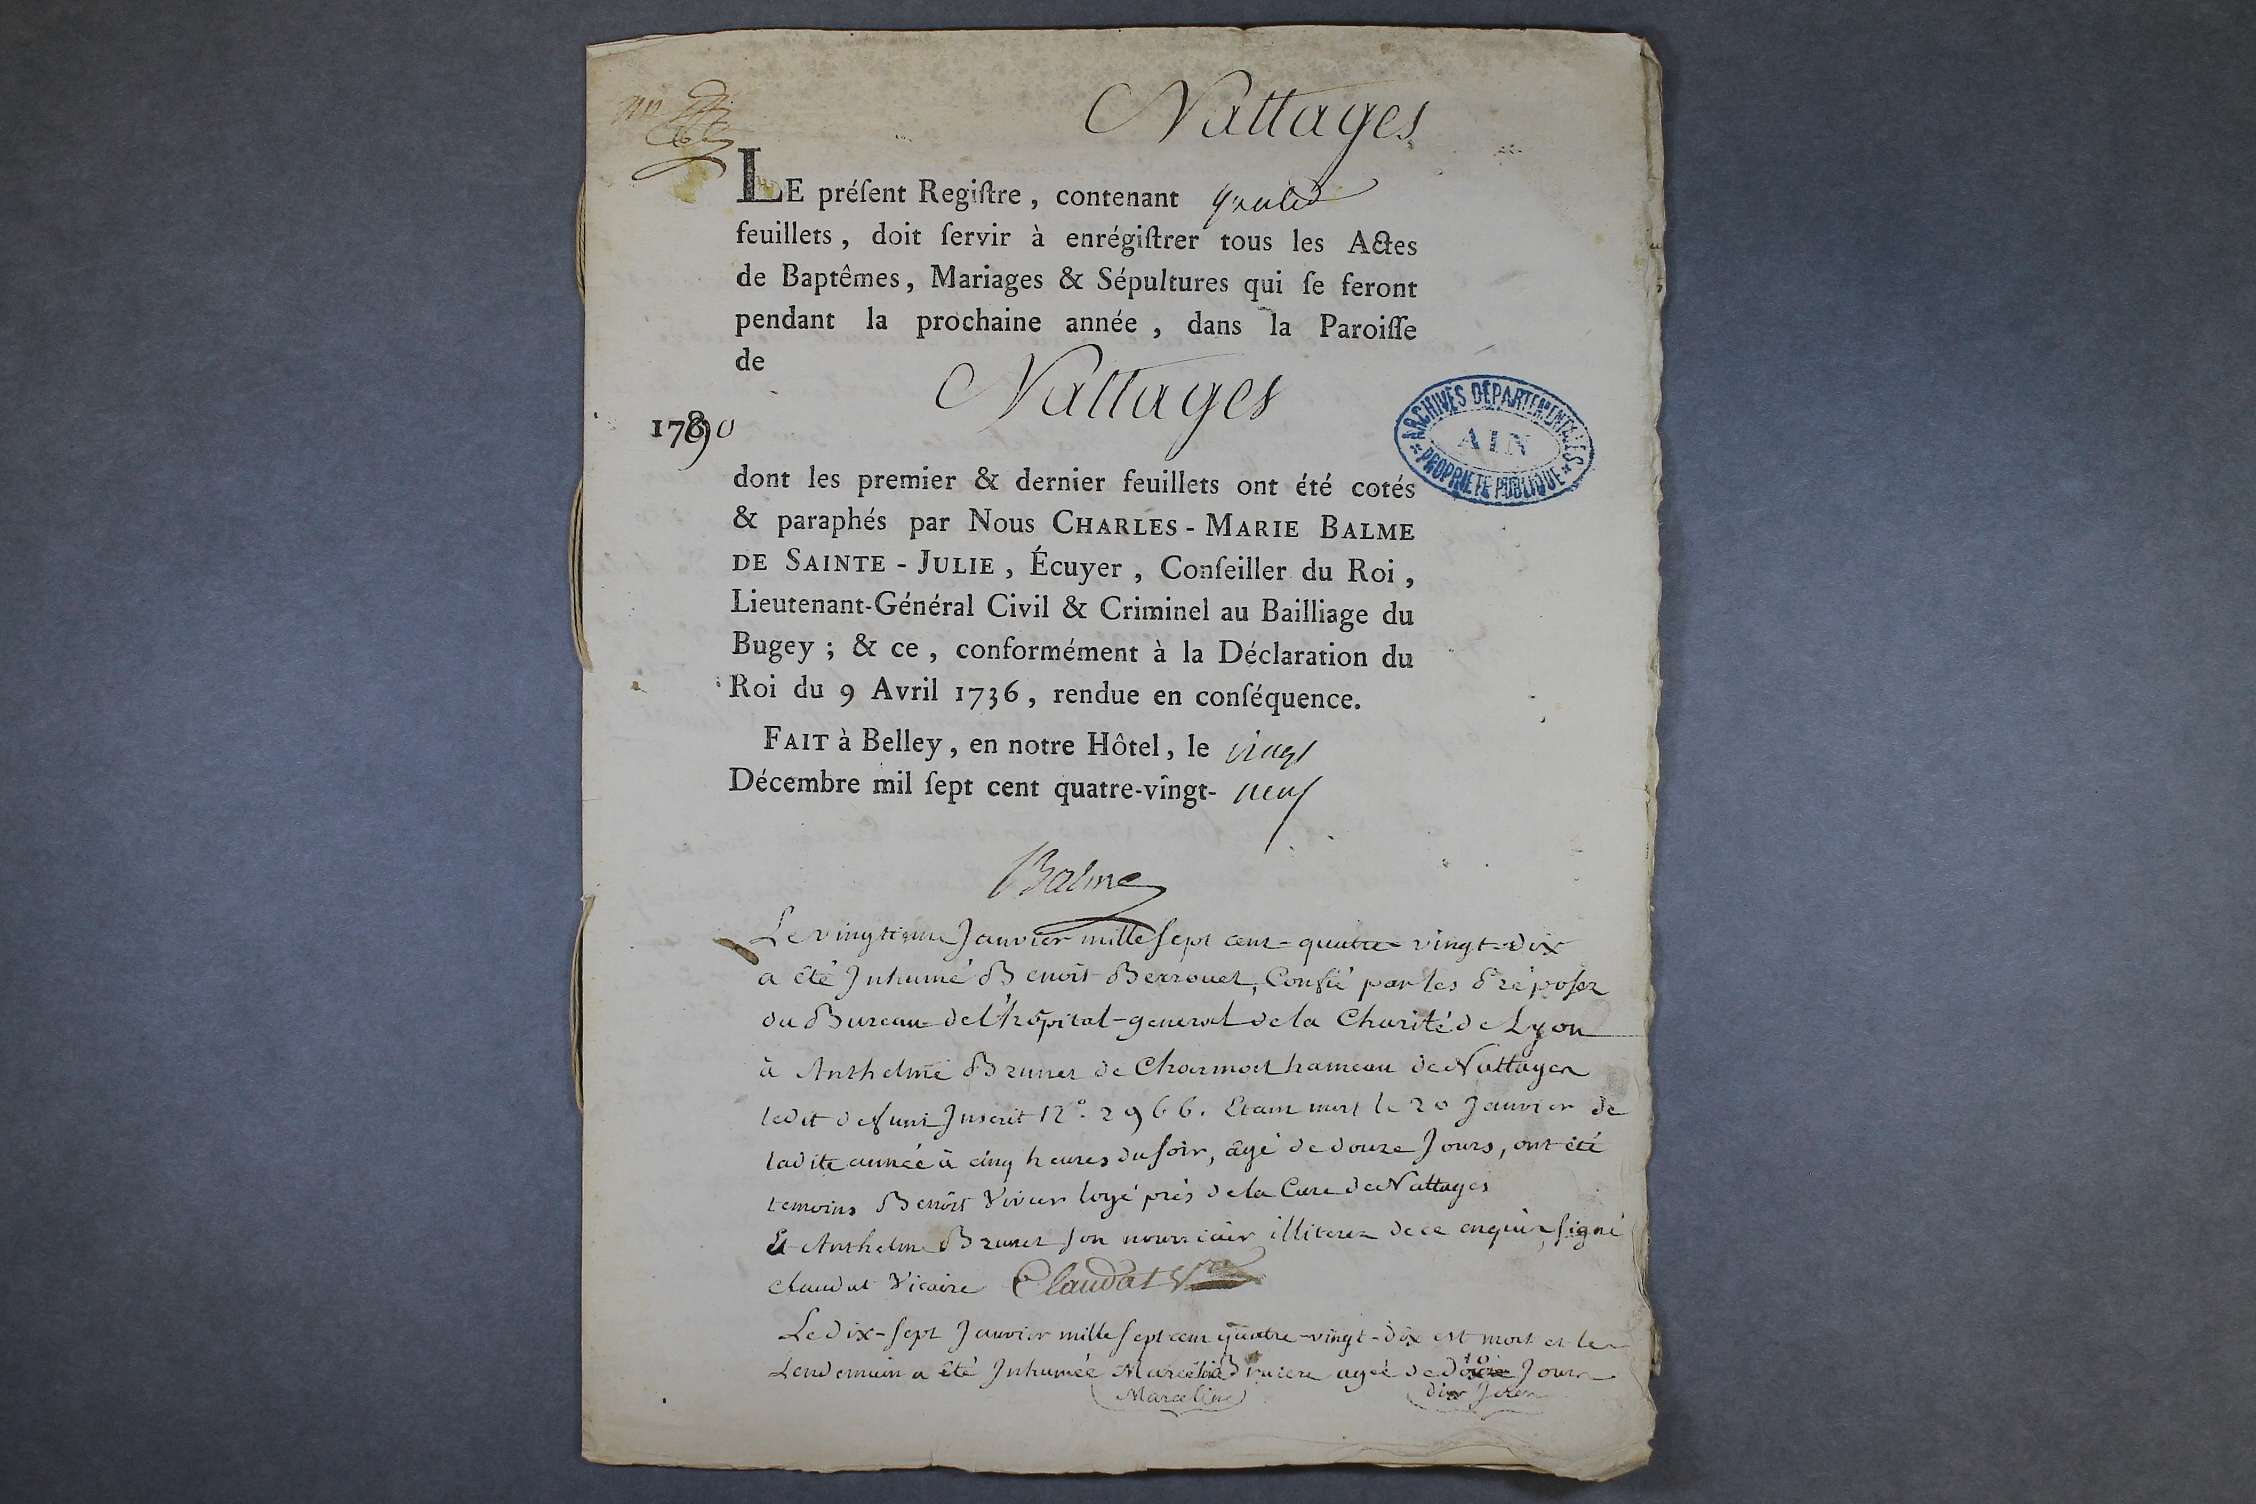 Nattages
LE préſent Regiſtre, contenant
feuillets, doit ſervir à enrégiſtrer tous les Actes
de Baptêmes, Mariages & Sépultures qui ſe feront
pendant la prochaine année, dans la Paroiſſe
de
Nattages
1790
ARCHIVES DÉPARTEMENTALES
AIN
PROPRIÉTÉ PUBLIQUE
dont les premier & dernier feuillets ont été cotés
& paraphés par Nous CHARLES-MARIE BALME
DE SAINTE-JULIE, Écuyer, Conſeiller du Roi,
Lieutenant-Général Civil & Criminel au Bailliage du
Bugey; & ce, conformément à la Déclaration du
Roi du 9 Avril 1736, rendue en conſéquence.
FAIT à Belley, en notre Hôtel, le vingt
Décembre mil ſept cent quatre-vingt-neuf
Balme
Le vingtieme Janvier mille sept cent quatre vingt-dix
a été Inhumé Benoit Berrouet, Confié par les Préposez
du Bureau de l'hôpital-general de la Charité de Lyon
à Anthelme Brunet de Charmont hameau de Nattages
ledit defunt Inscrit N°. 2966. Etant mort le 20 Janvier de
ladite année à cinq heures du soir, âgé de douze Jours, ont été
temoins Benôit Vivier logé près de la Cure de Nattages
Et Anthelme Brunet son nourricier illiterez de ce enquis, signé
Claudat Vicaire Claudat
Le dix-sept Janvier mille sept cent quatre-vingt-dix est mort et le
Lendemain a été Inhumée agée de Jours
Marceline
dix Jours